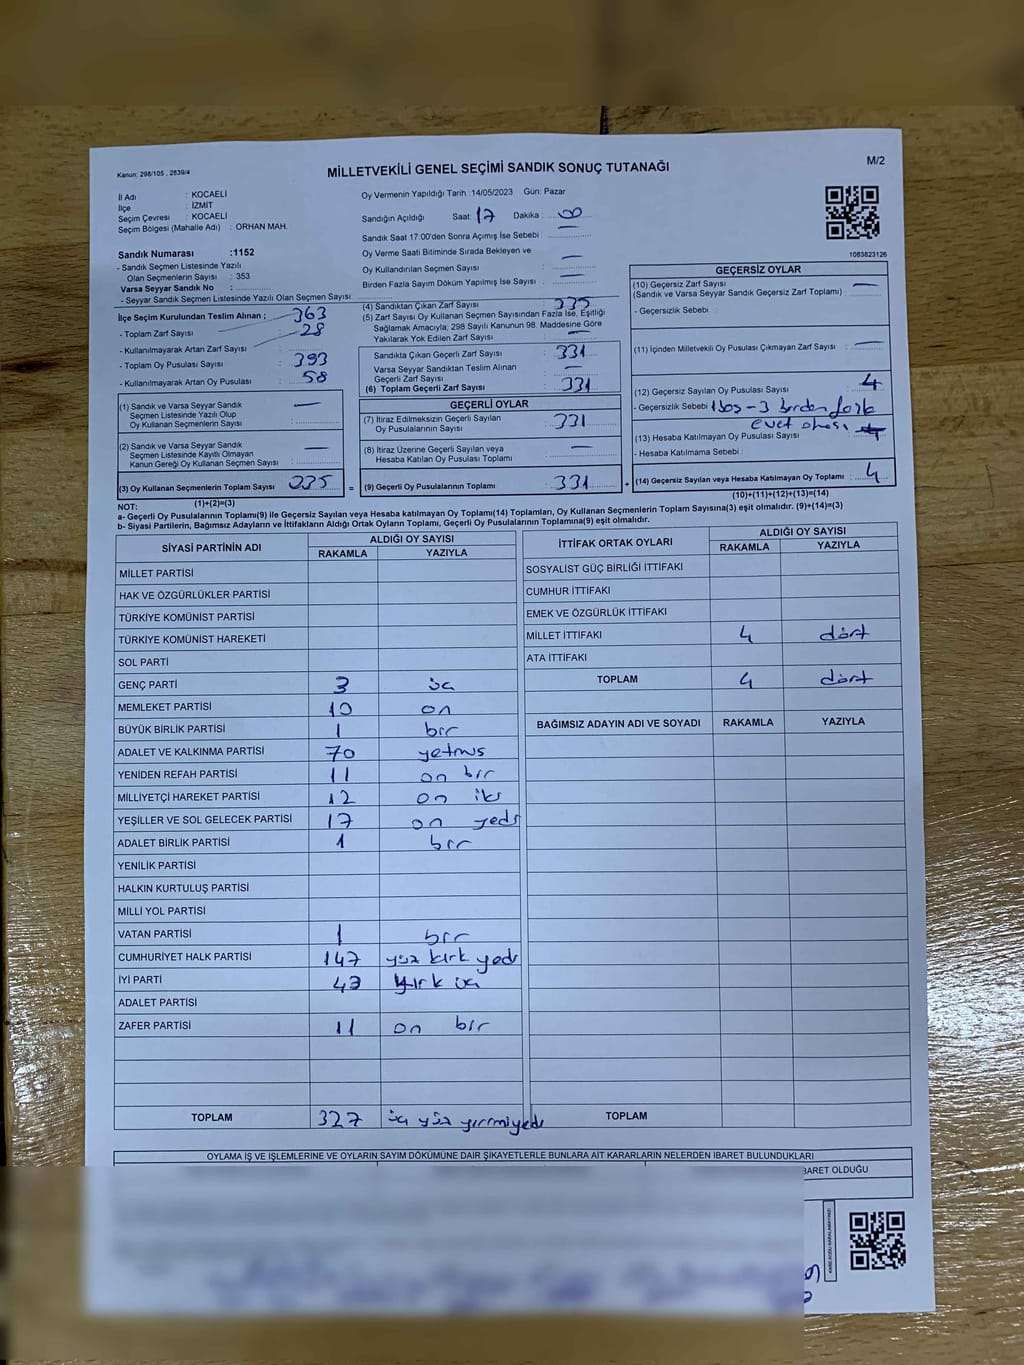 Kanun: 298/105 . 2839/4
MİLLETVEKİLİ GENEL SEÇİMİ SANDIK SONUÇ TUTANAĞI
M/2
İl Adı : KOCAELİ
İlçe : İZMİT
Seçim Çevresi : KOCAELİ
Seçim Bölgesi (Mahalle Adı) : ORHAN MAH.
Sandık Numarası :1152
- Sandık Seçmen Listesinde Yazılı
Olan Seçmenlerin Sayısı : 353
Varsa Seyyar Sandık No :
- Seyyar Sandık Seçmen Listesinde Yazılı Olan Seçmen Sayısı
Oy Vermenin Yapıldığı Tarih :14/05/2023 Gün: Pazar
Sandığın Açıldığı Saat: 17 Dakika : 00
Sandık Saat 17:00'den Sonra Açımış İse Sebebi : —
Oy Verme Saati Bitiminde Sırada Bekleyen ve
Oy Kullandırılan Seçmen Sayısı : —
Birden Fazla Sayım Döküm Yapılmış İse Sayısı : —
1083823126
İlçe Seçim Kurulundan Teslim Alınan ; 363
- Toplam Zarf Sayısı 28
- Kullanılmayarak Artan Zarf Sayısı :
- Toplam Oy Pusulası Sayısı : 393
- Kullanılmayarak Artan Oy Pusulası : 58
(1) Sandık ve Varsa Seyyar Sandık
Seçmen Listesinde Yazılı Olup
Oy Kullanan Seçmenlerin Sayısı : —
(2) Sandık ve Varsa Seyyar Sandık
Seçmen Listesinde Kayıtlı Olmayan
Kanun Gereği Oy Kullanan Seçmen Sayısı : —
(3) Oy Kullanan Seçmenlerin Toplam Sayısı : 335 =
(1)+(2)=(3)
(4) Sandıktan Çıkan Zarf Sayısı : 335
(5) Zarf Sayısı Oy Kullanan Seçmen Sayısından Fazla İse, Eşitliği
Sağlamak Amacıyla; 298 Sayılı Kanunun 98. Maddesine Göre
Yakılarak Yok Edilen Zarf Sayısı : —
Sandıkta Çıkan Geçerli Zarf Sayısı : 331
Varsa Seyyar Sandıktan Teslim Alınan
Geçerli Zarf Sayısı : —
(6) Toplam Geçerli Zarf Sayısı : 331
GEÇERLİ OYLAR
(7) İtiraz Edilmeksizin Geçerli Sayılan
Oy Pusulalarının Sayısı : 331
(8) İtiraz Üzerine Geçerli Sayılan veya
Hesaba Katılan Oy Pusulası Toplamı : —
(9) Geçerli Oy Pusulalarının Toplamı : 331 +
GEÇERSİZ OYLAR
(10) Geçersiz Zarf Sayısı
(Sandık ve Varsa Seyyar Sandık Geçersiz Zarf Toplamı) : —
- Geçersizlik Sebebi :
(11) İçinden Milletvekili Oy Pusulası Çıkmayan Zarf Sayısı : —
(12) Geçersiz Sayılan Oy Pusulası Sayısı : 4
- Geçersizlik Sebebi 1 boş - 3 birden fazla
evet olması
(13) Hesaba Katılmayan Oy Pusulası Sayısı :
- Hesaba Katılmama Sebebi :
(14) Geçersiz Sayılan veya Hesaba Katılmayan Oy Toplamı : 4
(10)+(11)+(12)+(13)=(14)
NOT:
a- Geçerli Oy Pusulalarının Toplamı(9) ile Geçersiz Sayılan veya Hesaba Katılmayan Oy Toplamı(14) Toplamları, Oy Kullanan Seçmenlerin Toplam Sayısına(3) eşit olmalıdır. (9)+(14)=(3)
b- Siyasi Partilerin, Bağımsız Adayların ve İttifakların Aldığı Ortak Oyların Toplamı, Geçerli Oy Pusulalarının Toplamına(9) eşit olmalıdır.
SİYASİ PARTİNİN ADI ALDIĞI OY SAYISI
RAKAMLA YAZIYLA
MİLLET PARTİSİ
HAK VE ÖZGÜRLÜKLER PARTİSİ
TÜRKİYE KOMÜNİST PARTİSİ
TÜRKİYE KOMÜNİST HAREKETİ
SOL PARTİ
GENÇ PARTİ 3 üç
MEMLEKET PARTİSİ 10 on
BÜYÜK BİRLİK PARTİSİ 1 bir
ADALET VE KALKINMA PARTİSİ 70 yetmiş
YENİDEN REFAH PARTİSİ 11 on bir
MİLLİYETÇİ HAREKET PARTİSİ 12 on iki
YEŞİLLER VE SOL GELECEK PARTİSİ 17 on yedi
ADALET BİRLİK PARTİSİ 1 bir
YENİLİK PARTİSİ
HALKIN KURTULUŞ PARTİSİ
MİLLİ YOL PARTİSİ
VATAN PARTİSİ 1 bir
CUMHURİYET HALK PARTİSİ 147 yüz kırk yedi
İYİ PARTİ 43 kırk üç
ADALET PARTİSİ
ZAFER PARTİSİ 11 on bir
TOPLAM 327 üç yüz yirmi yedi
İTTİFAK ORTAK OYLARI ALDIĞI OY SAYISI
RAKAMLA YAZIYLA
SOSYALİST GÜÇ BİRLİĞİ İTTİFAKI
CUMHUR İTTİFAKI
EMEK VE ÖZGÜRLÜK İTTİFAKI
MİLLET İTTİFAKI 4 dört
ATA İTTİFAKI
TOPLAM 4 dört
BAĞIMSIZ ADAYIN ADI VE SOYADI RAKAMLA YAZIYLA
TOPLAM
OYLAMA İŞ VE İŞLEMLERİNE VE OYLARIN SAYIM DÖKÜMÜNE DAİR ŞİKAYETLERLE BUNLARA AİT KARARLARIN NELERDEN İBARET BULUNDUKLARI
BARET OLDUĞU